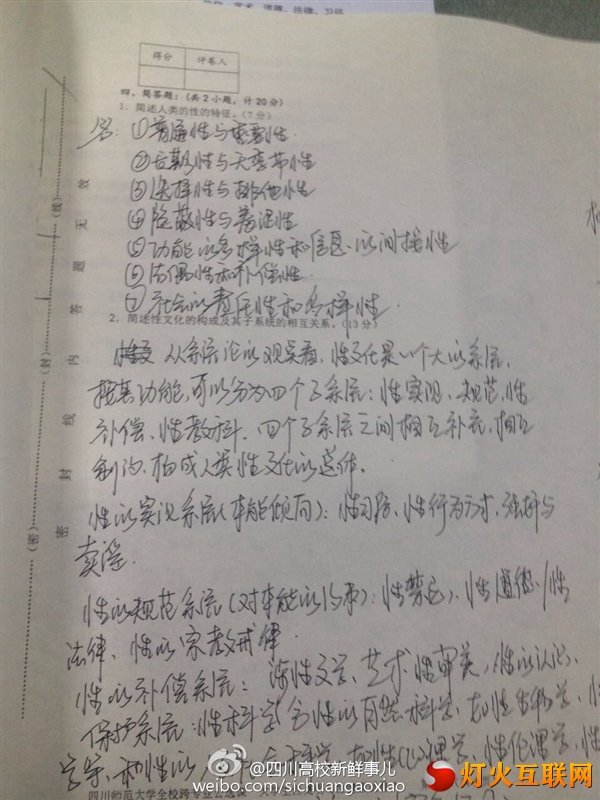 得分 评卷人
四、简答题:(共2小题,计20分)
1. 简述人类的性的特征。(7分)
答:①普遍性与重要性
②后期性与
③选择性与排他性
④隐蔽性与
⑤功能的多样性和信息的间接性
⑥ 性和补偿性
⑦社会的 性和多样性
2. 简述性文化的构成及其子系统的相互关系。(13分)
从系统论的观点看,性文化是一个大的系统,
按其功能,可以分为四个子系统:性实现、规范、性
补偿、性教科。四个子系统之间相互补充,相互
制约,构成人类性文化的整体。
性的实现系统(本能倾向):性习俗、性行为方式、 与
卖淫。
性的规范系统(对本能的约束):性禁忌、性道德、性
法律、性的宗教戒律
性的补偿系统:涉性文学、艺术、性审美,性的认识、
保护系统:性科学,含性的自然科学,如性生物学,性
四川师范大学全校跨专业公选课
(密) (封) (线)
密 封 线 内 答 题 无 效
@四川高校新鲜事儿
weibo.com/sichuangaoxiao
灯火互联网